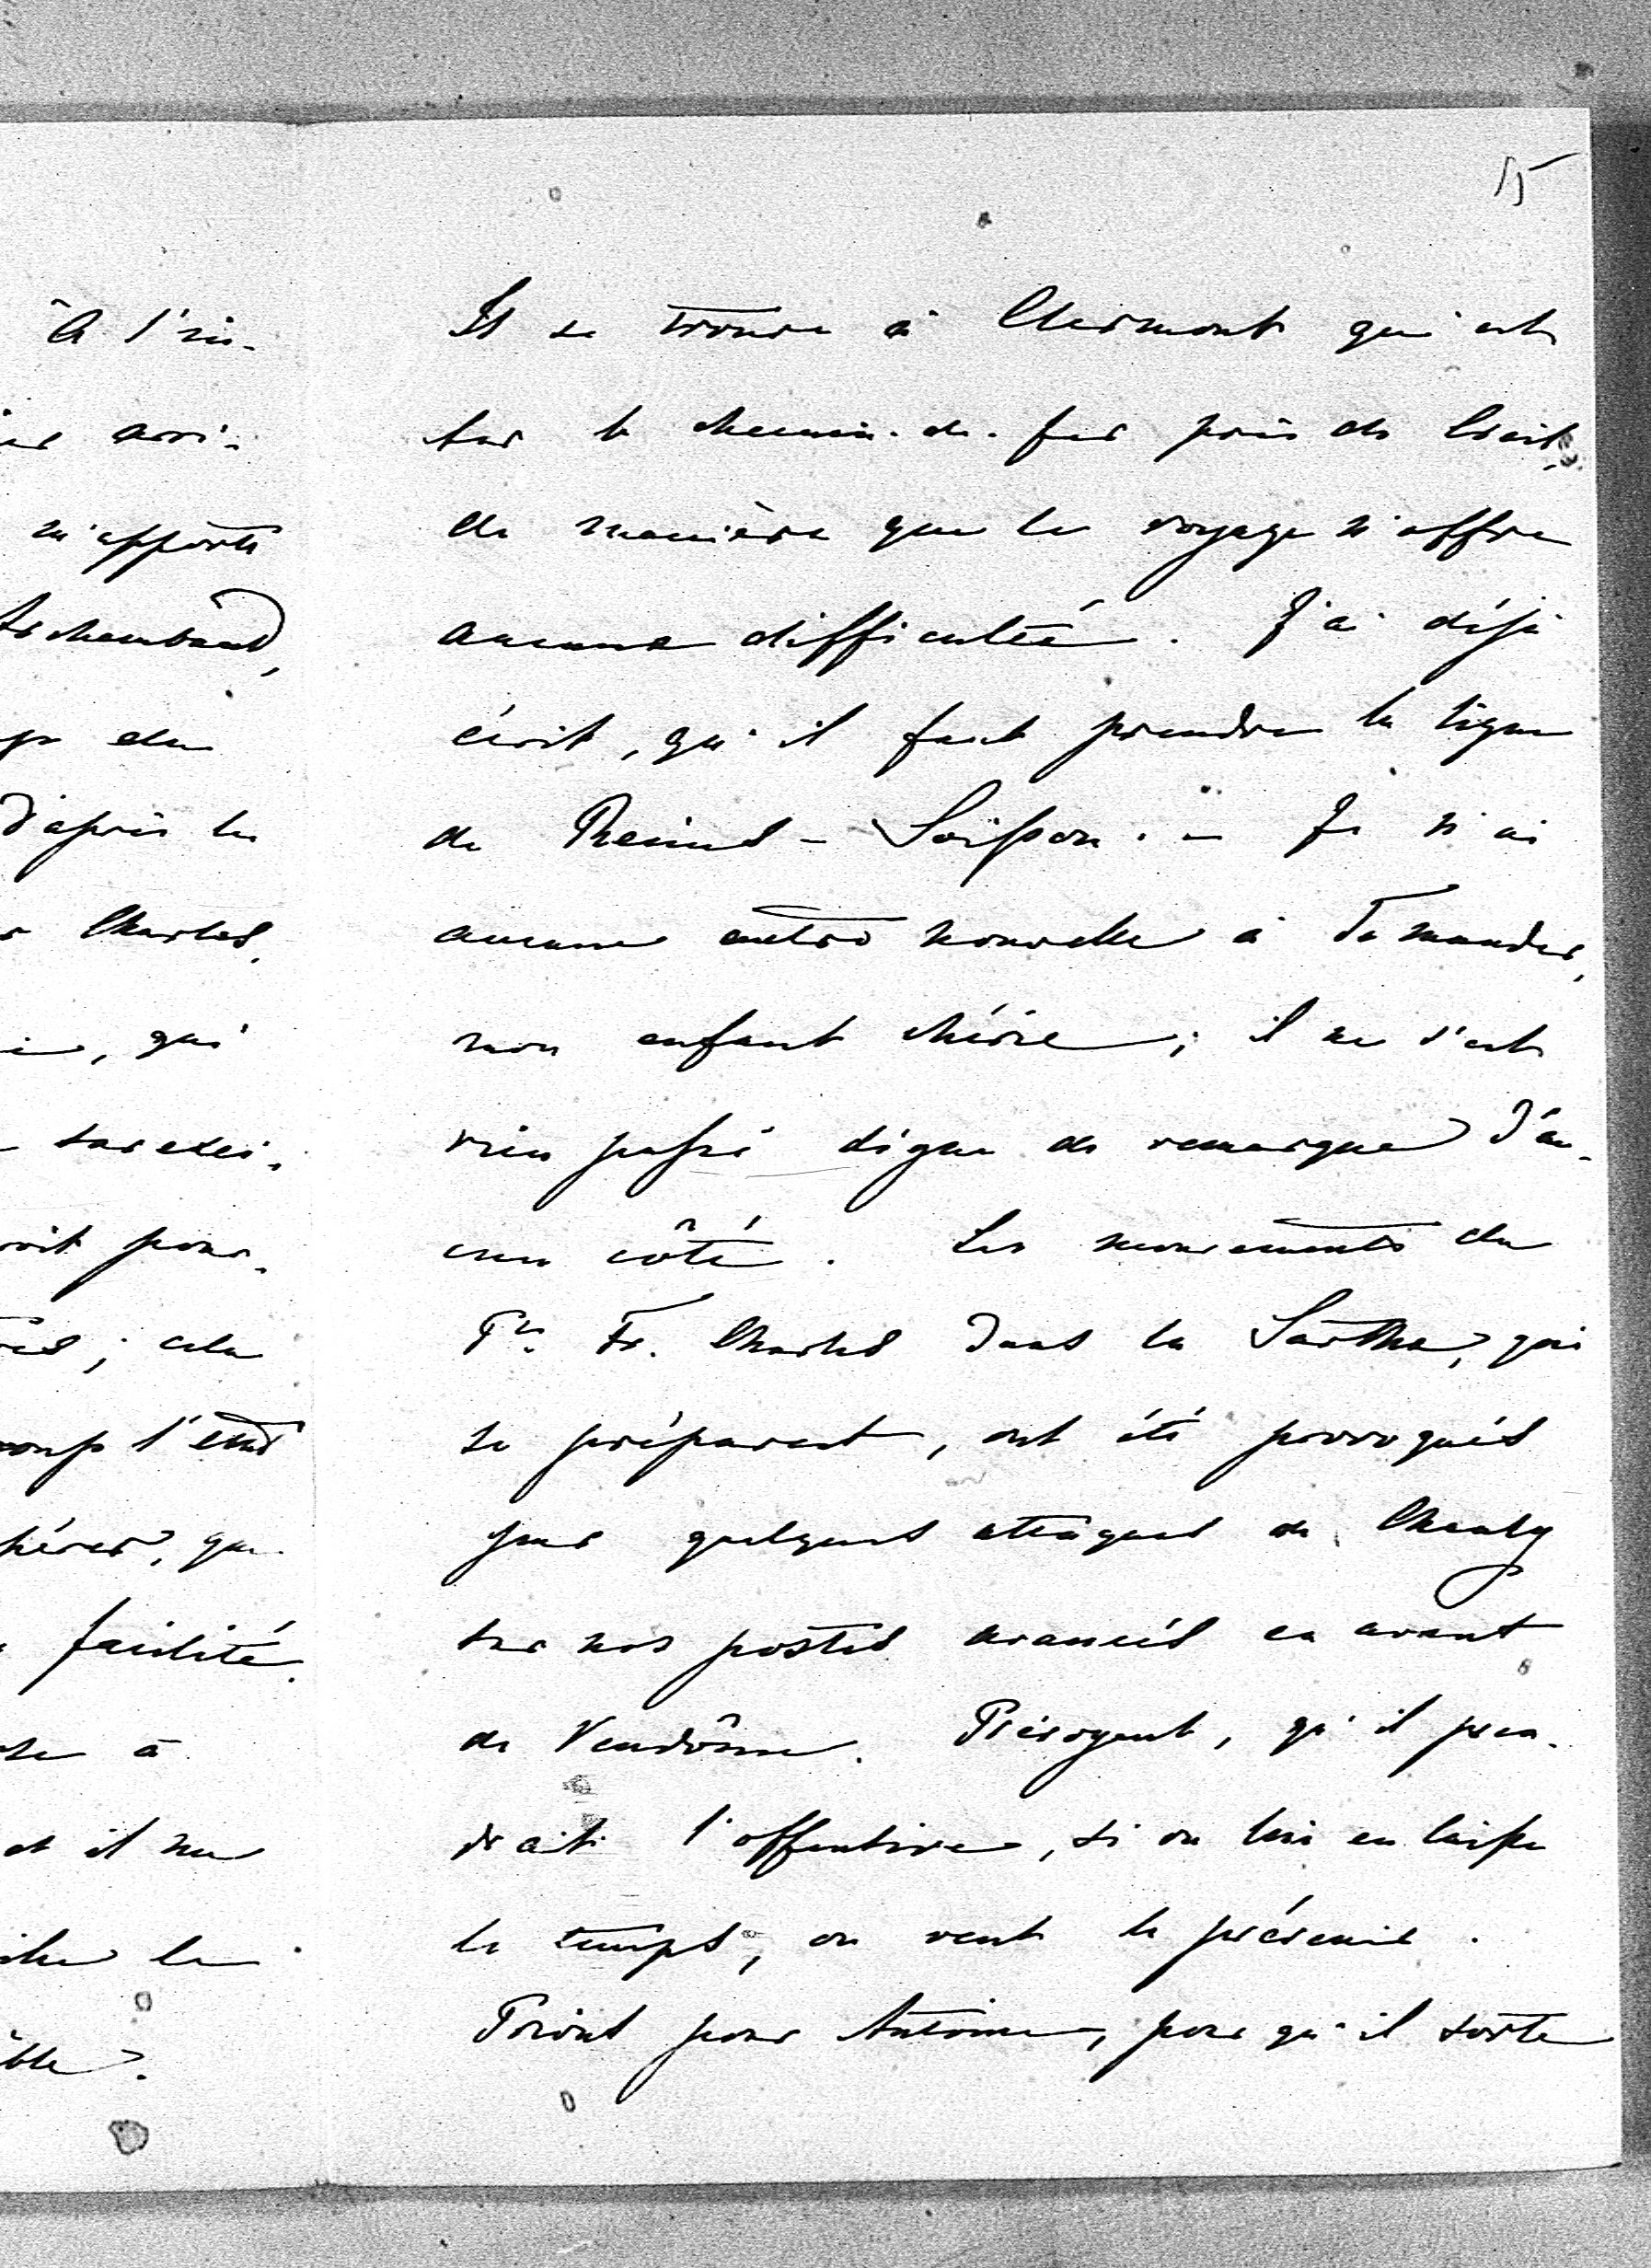 15
à l'in-
arri-
m'apporte
Archambaud,
du
d'après les
Charles,
, qui
soit pour-
; cela
l'est
, que
facilité.
à
et il ne
le
Il se trouve à Clermont qui est
sur le chemin-de-fer près de Creil,
de manière que le voyage n'offre
aucune difficulté. J'ai déjà
écrit, qu'il faut prendre la ligne
de Reims-Soisson. - Je n'ai
aucune autre nouvelle à Te mander,
mon enfant chérie; il ne s'est
rien passé digne de remarque d'au-
cun côté. Les mouvements du
Pce Fr. Charles dans la Sarthe, qui
se préparent, ont été provoqués
par quelques attaques de Chanzy
sur nos postes avancés en avant
de Vendôme. Prévoyant, qu'il pren-
drait l'offensive, si on lui en laisse
le temps, on veut le prévenir.
Prions pour Antoine, pour qu'il sorte